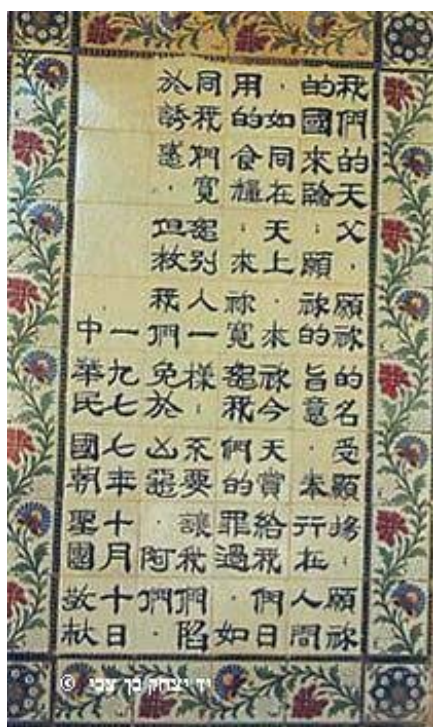 我們的天父，願祢的名受顯揚；願祢
的國來臨；願祢的旨意奉行在人間
，如同在天上。求祢今天賞給我們日
用的食糧；求祢寬恕我們的罪過，如
同我們寬恕別人一樣；不要讓我們陷
於誘惑，但救我們免於凶惡。阿們。
一九七七年十月十日
中華民國朝聖團敬献
© יד יצחק בן צבי